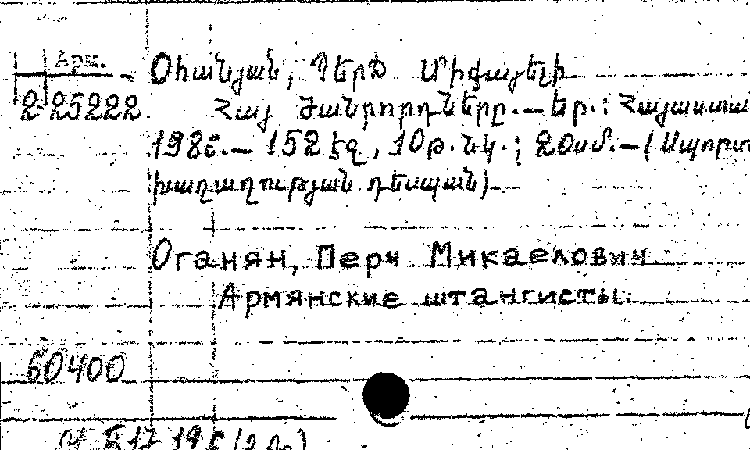 Арм.
2-25222
Օհանյան, Պերճ Միքայելի
Հայ ծանրորդները.—Եր.: Հայաստան
198 .— 152 էջ, 10թ. նկ.; 20սմ.—(Սպորտ
խաղաղության դեսպան)
Оганян, Перч Микаелович
Армянские штангисты.
60400